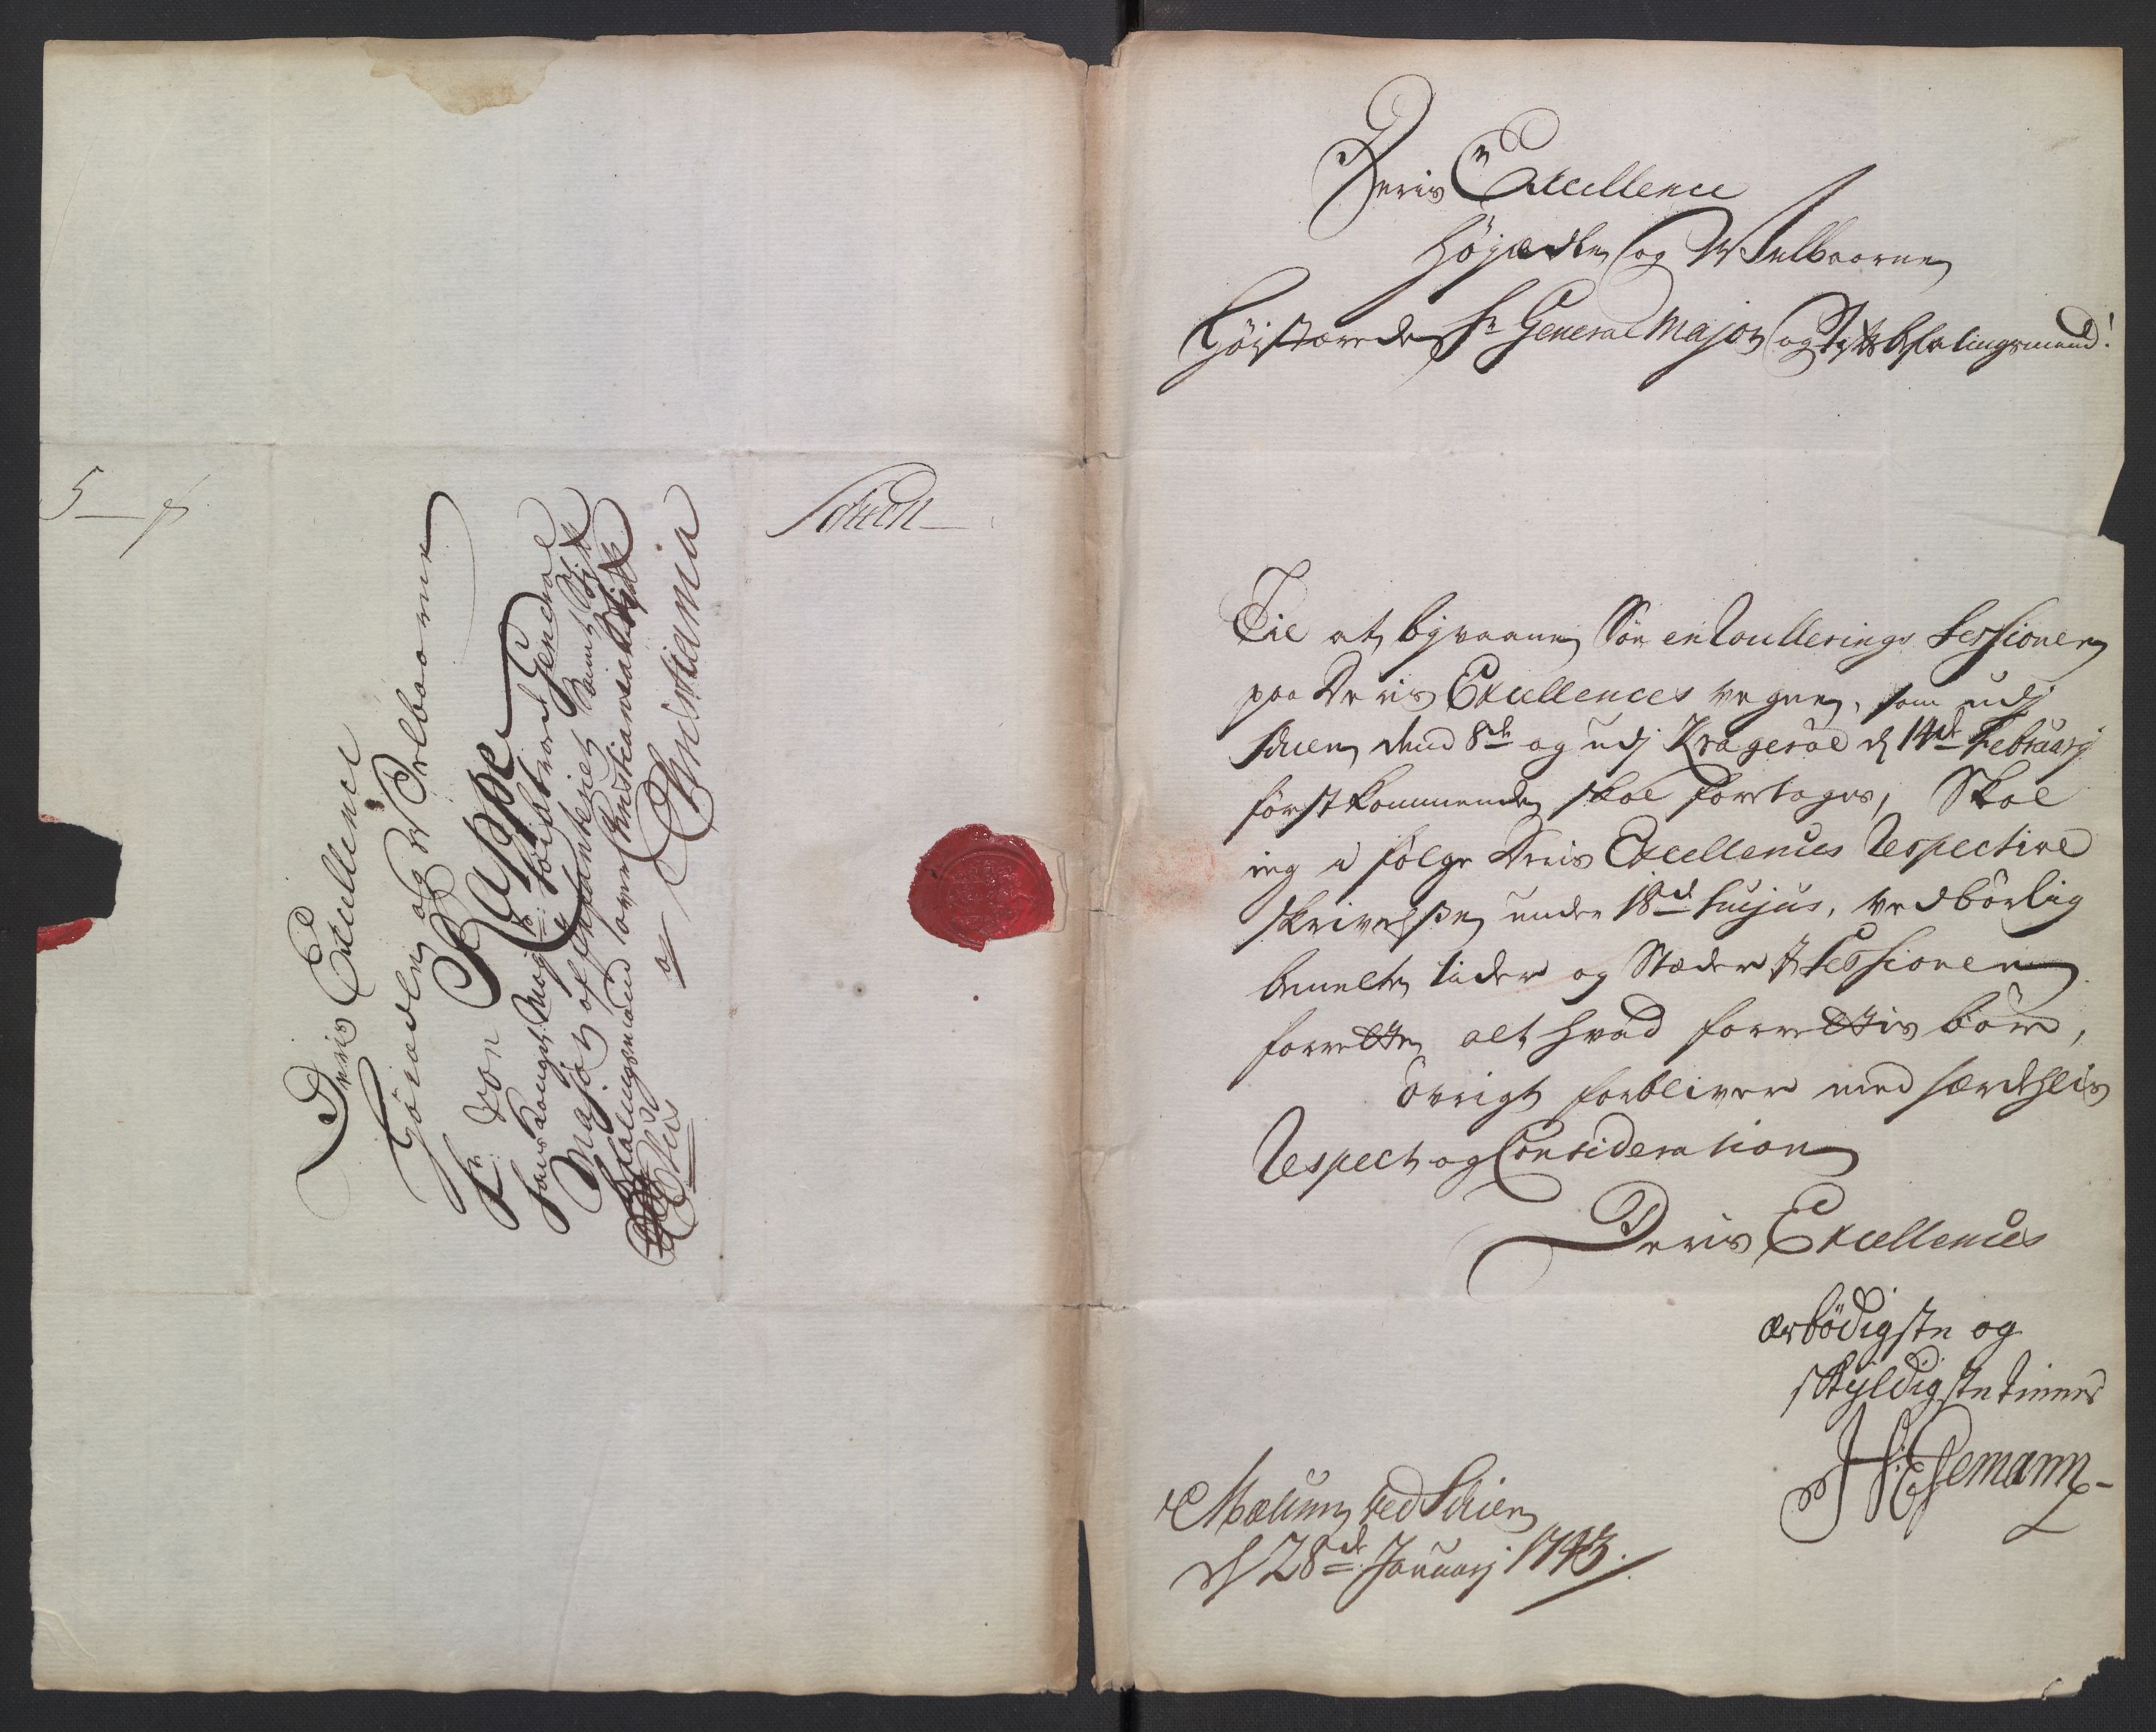 5 — β
Deris Excellence
Höÿædle og Welbaarne
Hr: von Rappe
Hans Kongl: Mayts: höÿbetroed General
Major af Infanteriet samt Stift
Befalingsmand over Christiansands Stift
à Christiania
Schien
Deris Excellence
Höÿædle og Welbaarne
Höÿstærede Hr General Major og Stiftsbefalingsmand!
Til at bÿvaane Söe enroullerings Sessionen
paa Deris Excellences vegne, som udj
Schien dend 8de og udj Krageröe d 14de Februarj
förstkommende skal foretages, Skal
ieg i fölge Deris Excellences Respective
skrivelse under 18de hujus, vedbörlig
bemelte tider og Stæder Sessionen
forrette alt hvad forrettis bör,
övrigt forbliver med særdeslis
Respect og Consideration
Deris Excellences
ærbödigste og
skÿldigste tienner
H Esemann
Mælum ved Schien
d 28de Januarj 1743.